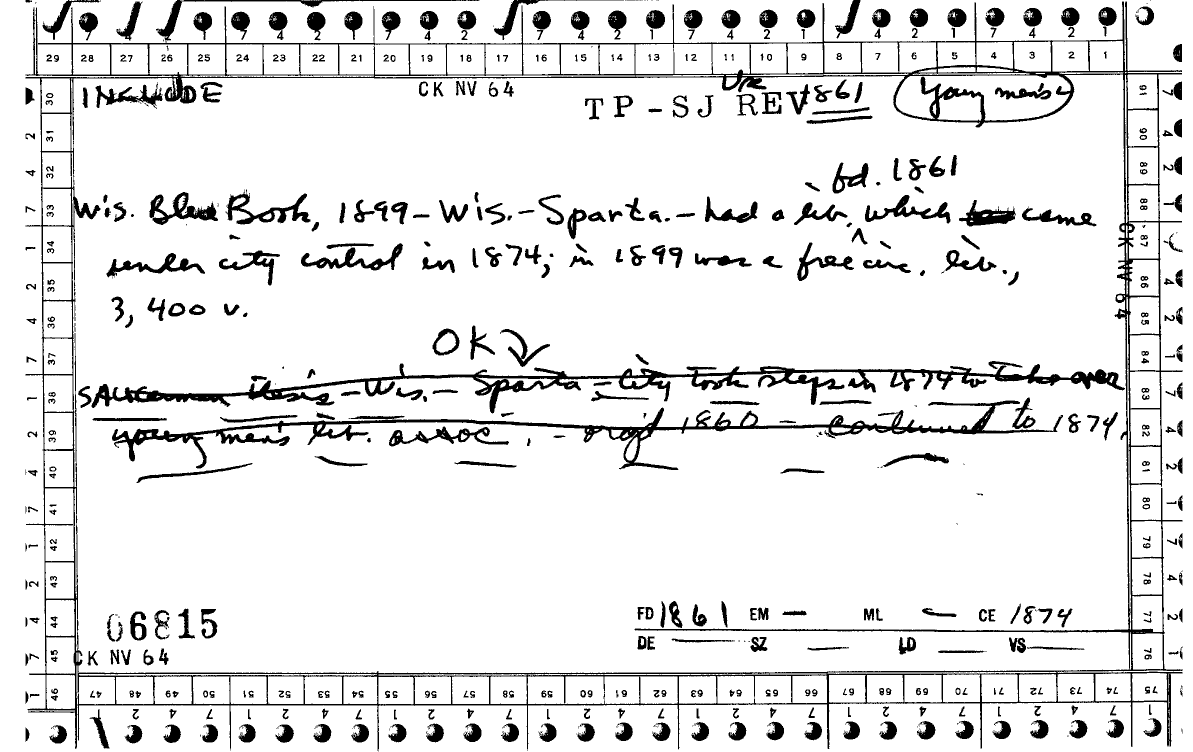 7 4 2 1 7 4 2 1 7 4 2 1 7 4 2 1 7 4 2 1 7 4 2 1
29 28 27 26 25 24 23 22 21 20 19 18 17 16 15 14 13 12 11 10 9 8 7 6 5 4 3 2 1
INCLUDE
CK NV 64
Use
TP-SJ REV 1861
Young men's
fd. 1861
Wis. Blue Book, 1899 - Wis. - Sparta. - had a lib. which came
under city control in 1874; in 1899 was a free circ. lib.,
3,400 v.
OK
SAUCerman thesis - Wis. - Sparta - City took steps in 1874 to take over
young men's lib. assoc. - org'd 1860 - continued to 1874.
06815
CK NV 64
FD 1861 EM — ML — CE 1874
DE — SZ — LD — VS —
30 31 32 33 34 35 36 37 38 39 40 41 42 43 44 45 46
91 90 89 88 87 86 85 84 83 82 81 80 79 78 77 76 75
CK NV 64
47 48 49 50 51 52 53 54 55 56 57 58 59 60 61 62 63 64 65 66 67 68 69 70 71 72 73 74